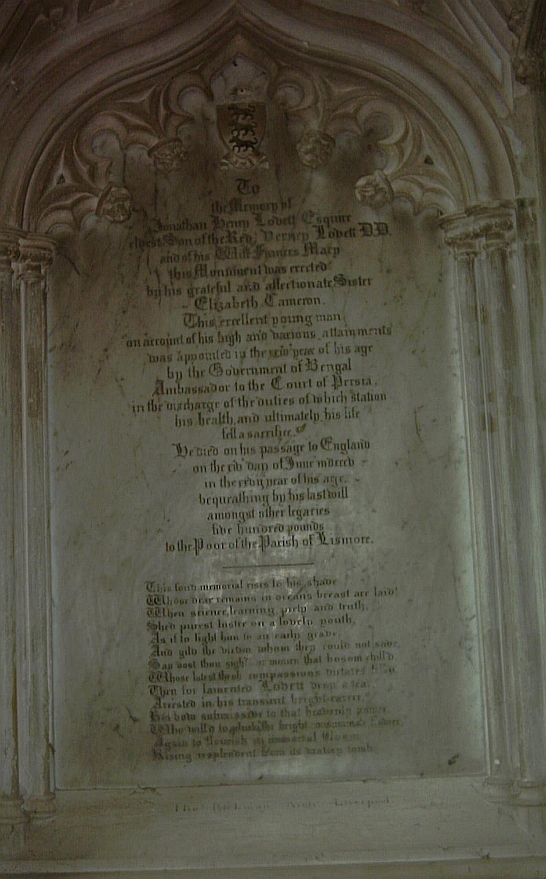 To
the Memory of
Jonathan Henry Lovett Esquire
eldest Son of the Rev. Verney Lovett DD.
and of his Wife Frances Mary
this Monument was erected
by his grateful and affectionate Sister
Elizabeth Cameron.
This excellent young man
on account of his high and various attainments
was appointed in the year of his age
by the Government of Bengal
Ambassador to the Court of Persia.
in the discharge of the duties of which station
his health, and ultimately his life
fell a sacrifice.
He died on his passage to England
on the day of June mdcccv
in the year of his age.
bequeathing by his last will
amongst other legacies
five hundred pounds
to the Poor of the Parish of Lismore.
This fond memorial rises to his shade
Whose dear remains in oceans breast are laid!
When science, learning, piety and truth,
Shed purest lustre on a lovely youth,
As if to light him to an early grave,
And gild the victim whom they could not save,
Say dost thou sigh? or mourn that bosom chill'd
Whose latest throb compassions dictates
Then for lamented Lovett drop a tear
Arrested in his transient bright career,
But bow submissive to that heavenly power
Who will'd to pluck the bright
Again to flourish in immortal
Rising resplendent from its watery tomb
Liverpool